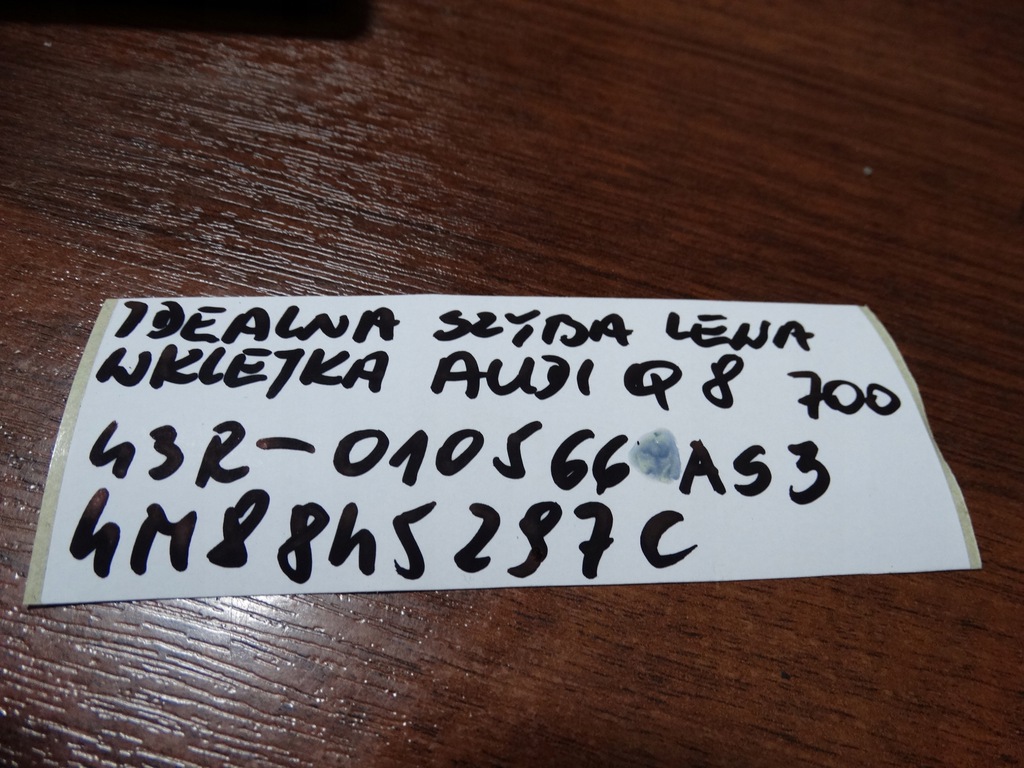 IDEALNA SZYBA LEWA
WKLEJKA AUDI Q8 700
43R-010566 AS3
4M8845297C